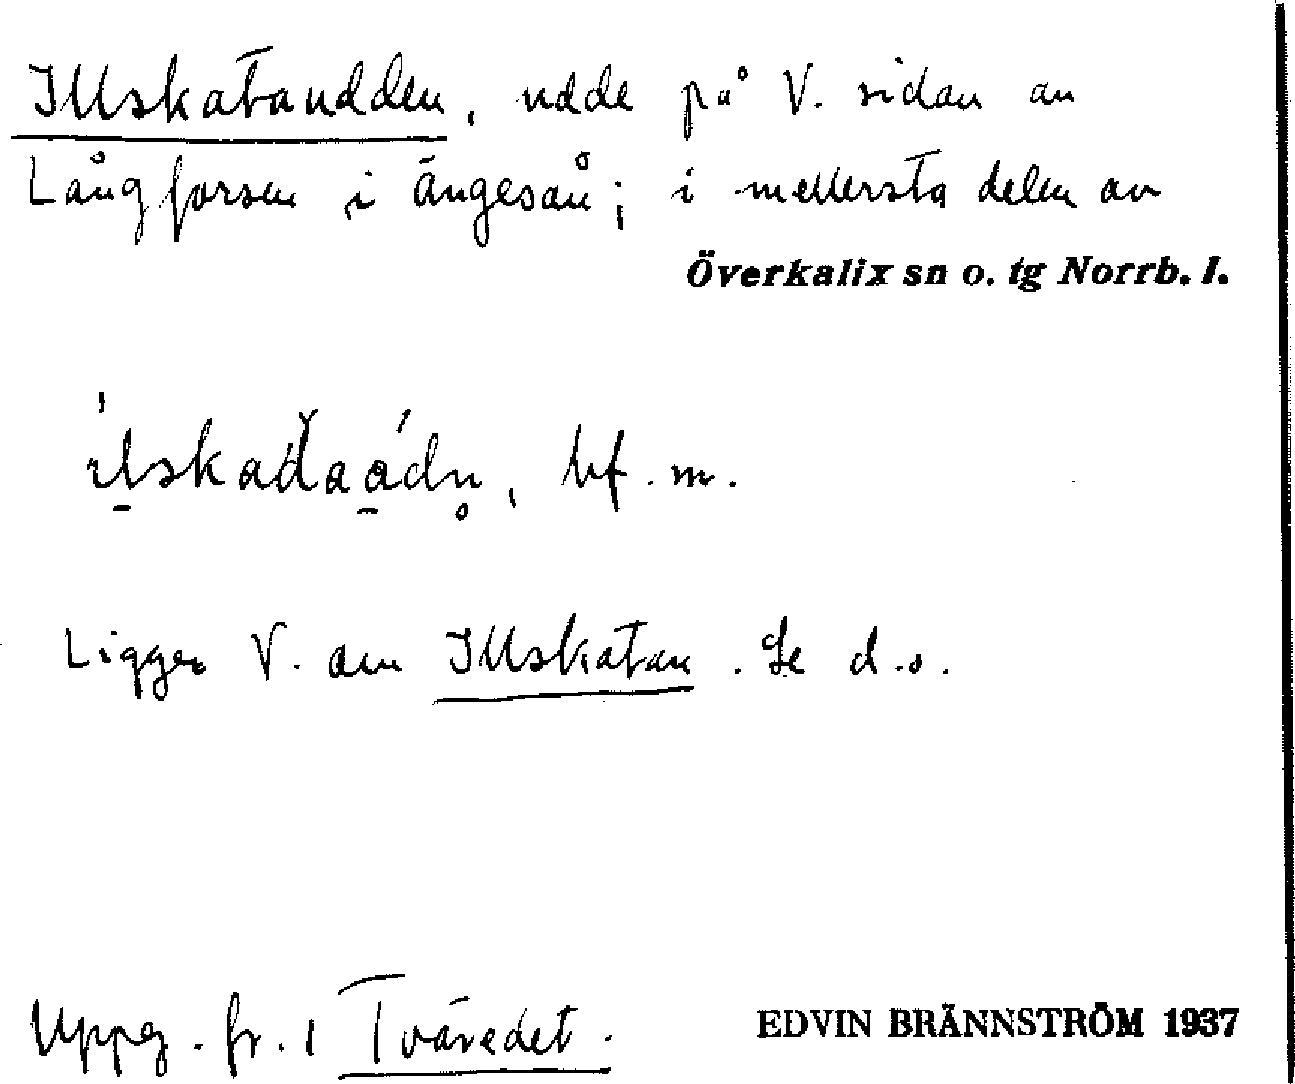 Illskatanudden, udde på V. sidan av
Långforsen i Ängesån; i mellersta delen av
Överkalix sn o. tg Norrb. l.
bf. m.
Ligger V. om Illskatan. Se d.o.
Uppg. fr. Tväredet.
EDVIN BRÄNNSTRÖM 1937